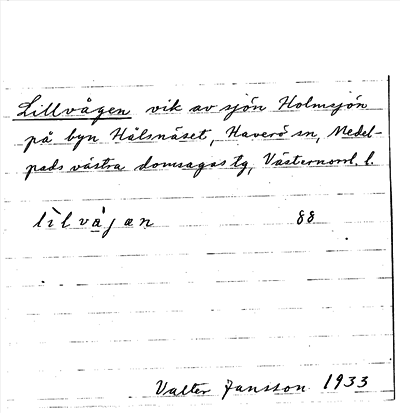 Lillvågen vik av sjön Holmsjön
på byn Hålsnäset, Haverö sn, Medel-
pads västra domsagas tg, Västernorrl. l.
lìlvåjan 88
Valter Jansson 1933